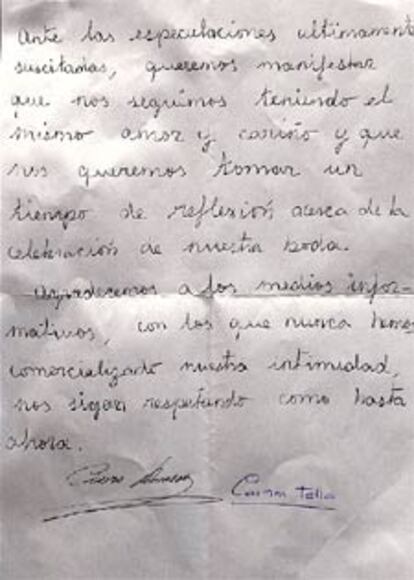 Ante las especulaciones ultimament
suscitadas, queremos manifestar
que nos seguimos teniendo el
mismo amor y cariño y que
nos queremos tomar un
tiempo de reflexión acerca de la
celebración de nuestra boda.
Agradecemos a los medios infor-
mativos, con los que nunca hemos
comercializado nuestra intimidad,
nos sigan respetando como hasta
ahora.
Carmen Tello